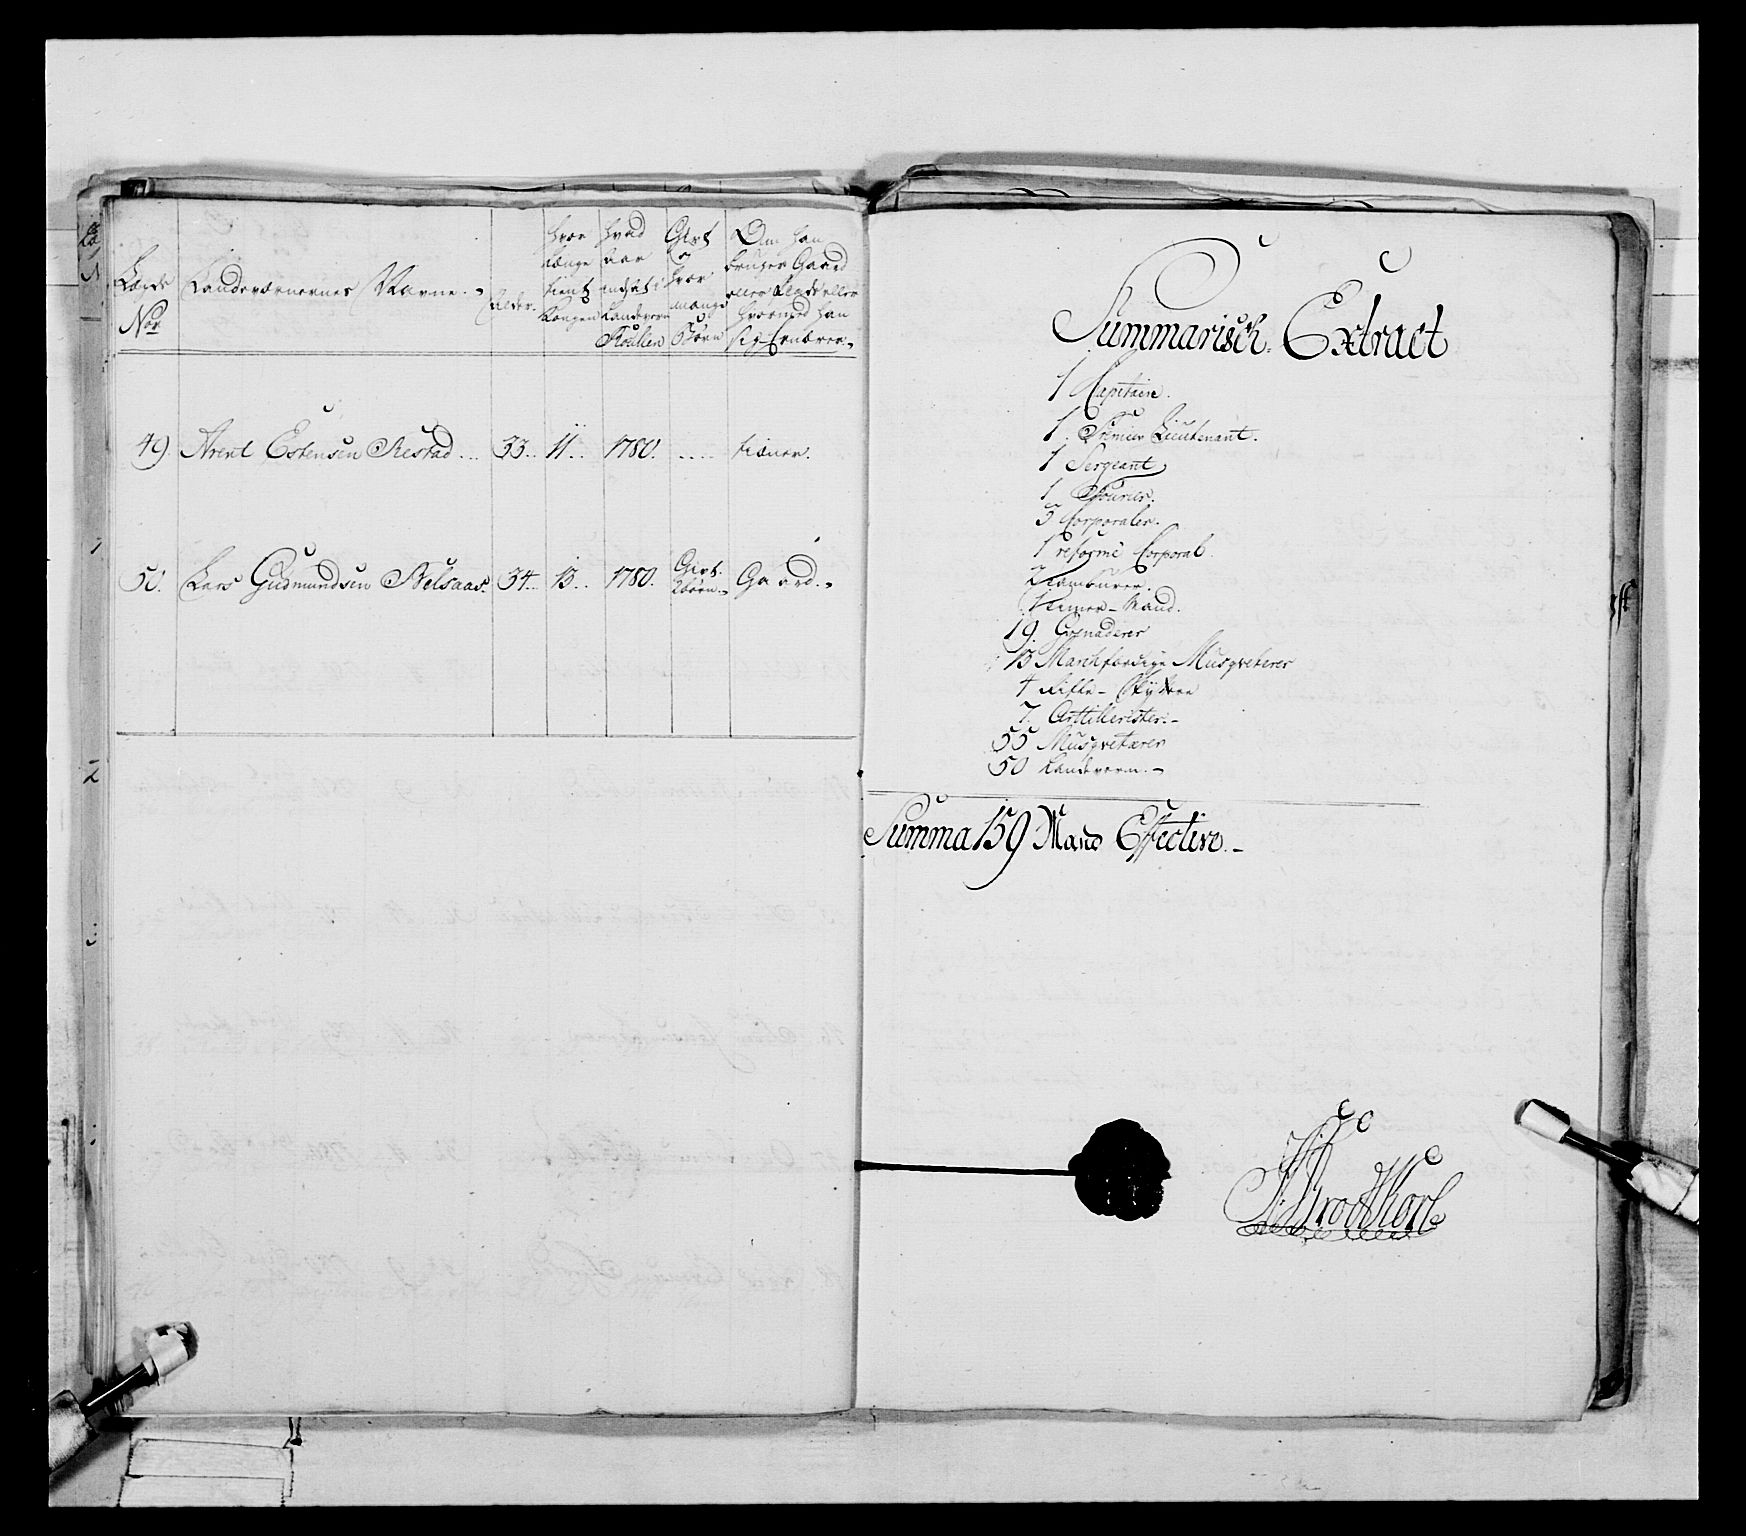 Lægds
No
Landeværnernes Navne.
Alder.
hvor
længe
tient
Kongen
hvad
Aar
indsat i
Landevern
Roullen
Givt
og
hvor
mange
Børn
Om han
bruger Gaard
eller Plads eller
hvormed han
sig Ernærer.
49. Arent Estensen Restad... 33.. 11.. 1780. .... tiener.
50. Lars Gudmundsen Belsaas. 34... 13.. 1780. Givt. 2børn.- Gaard.-
Summarisch Extract
1 Capitain.
1. Premier Lieutenant.
1 Sergeant
1 Fourier.
3 Corporaler.
1 reformé Corporal.
2 Tambourer.
1 Timer-Mand.
19. Grenaderer
13 Marchfærdige Musqveterer
4 Riffle-Skyttere
7. Arttillerister.-
55 Musqvetærer
50 Landevern.-
Summa 159 Mand Effective.-
Brodtkorb